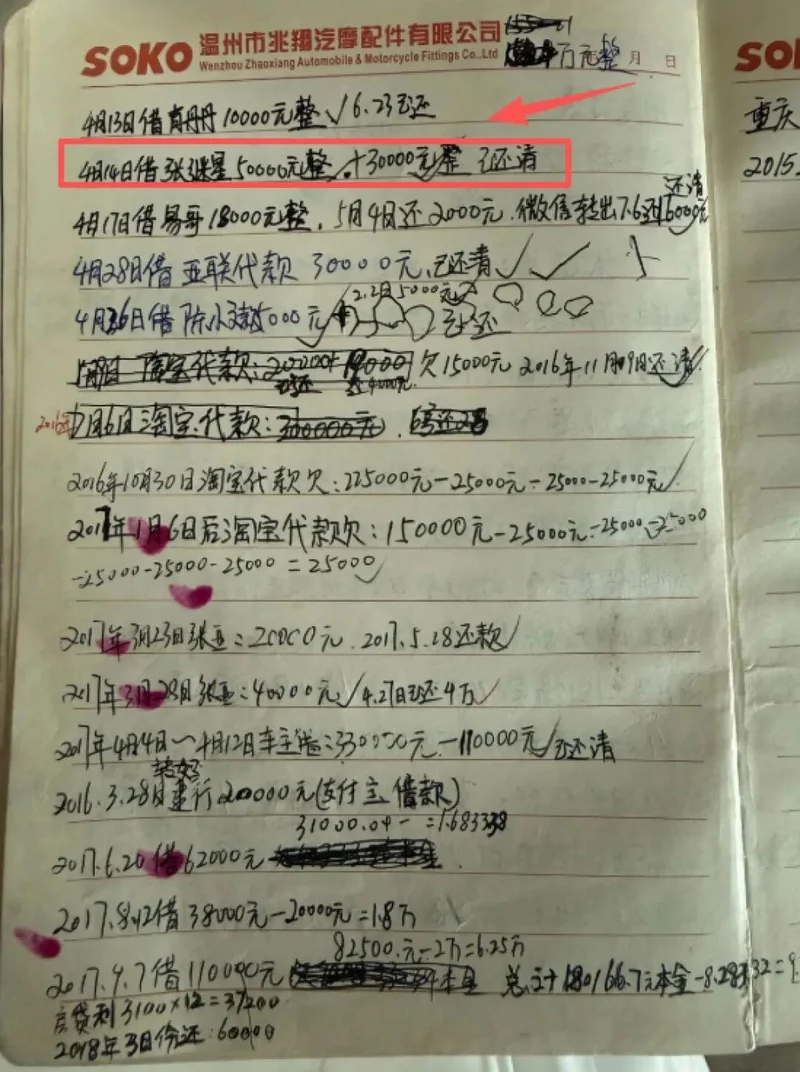 SOKO 温州市兆翔汽摩配件有限公司
Wenzhou Zhaoxiang Automobile & Motorcycle Fittings Co.,Ltd
万元整 月 日
4月13日借 丹丹 10000元整√ 6.23已还
4月14日借 张继星 50000元整 +30000元整 已还清
还清
4月17日借易哥 18000元整, 5月4日还2000元. 微信转出
4月28日借 亚联代款 30000元,已还清√√
2.2日5000元
4月26日借 陈小 5000元 已还
淘宝代款: 欠15000元 2016年11月09日还清
2016年 7月6日淘宝代款: 300000元
2016年10月30日淘宝代款欠:225000元-25000元-25000-25000元√
2017年1月6日后淘宝代款欠:150000元-25000元-25000-25000
-25000-25000-25000=25000√
2017年3月23日张亚=20000元. 2017.5.28还款√
2017年3月28日张亚=40000元√ 4.27日已还4万√
2017年4月4日~4月12日车主 :330000元-110000元√已还清
2016.3.28日建行200000元(支付宝借款)
31000.04- =1.683338
2017.6.20借62000元
2017.8.12借38000元-20000元=1.8万
82500.元-2万=6.25万
2017.9.7借110000元 本金 总计180166.7元本金
房贷利3100×12=37200
2018年3日份还:60000
重庆
2015.